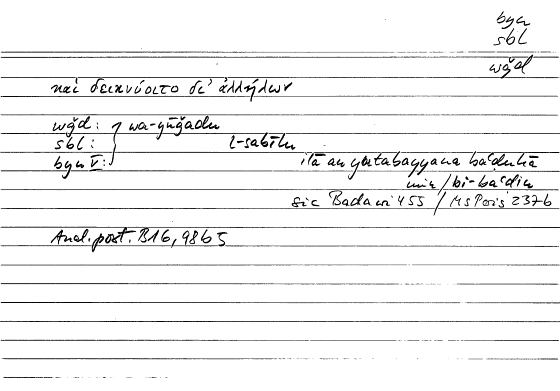 byn
sbl
wǧd
καὶ δεικνύοιτο δι' ἀλλήλων
wǧd: } wa-yūǧadu
sbl: l-sabīlu
byn V: ilā an yatabayyana baʿḍuhā
min / bi-baʿḍin
sic Badawi 455 / Ms Paris 237b
Anal. post. B16, 98b5